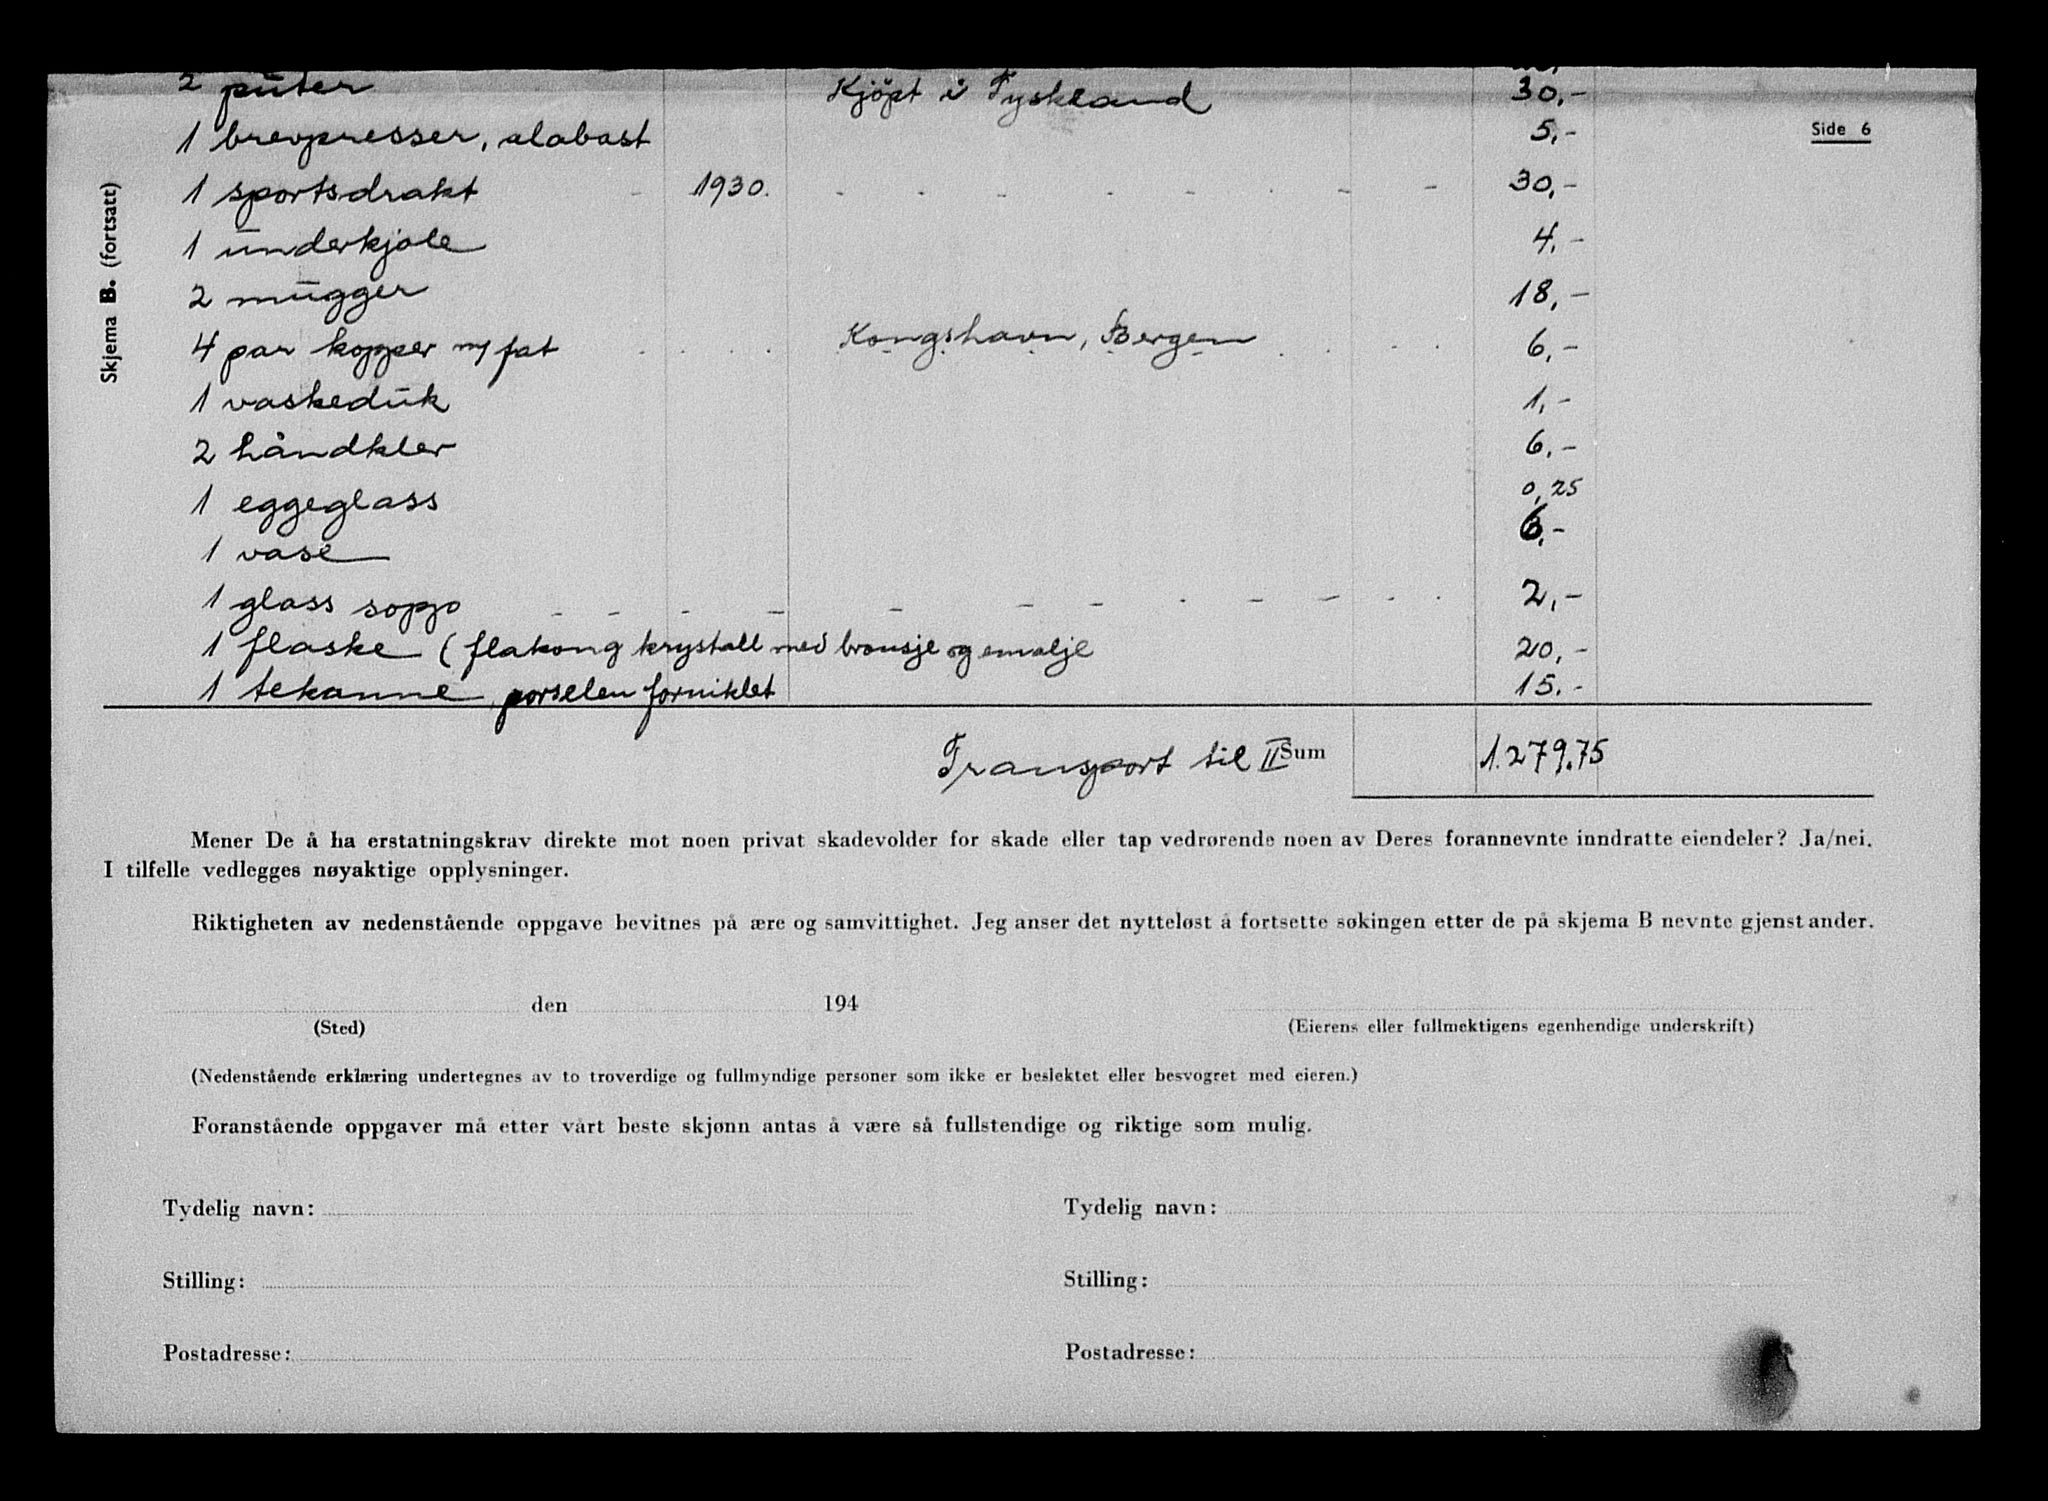 2 puter Kjöpt i Tyskland 30,-
1 brevpresser, alabast 5,-
Side 6
Skjema B. (fortsatt)
1 sportsdrakt - 1930. - - - - - - - 30,-
1 underkjole 4,-
2 mugger 18,-
4 par kopper m/ fat . . . Kongshavn, Bergen . . . . 6,-
1 vaskeduk 1,-
2 håndkler 6,-
1 eggeglass 0,25
1 vase 6,-
1 glass sopp - - - - - - - - - - . . 2,-
1 flaske (flakong krystall med bronsje og emalje 20,-
1 tekanne, porselen forniklet 15.-
Transport til II Sum 1.279.75
Mener De å ha erstatningskrav direkte mot noen privat skadevolder for skade eller tap vedrørende noen av Deres forannevnte inndratte eiendeler? Ja/nei.
I tilfelle vedlegges nøyaktige opplysninger.
Riktigheten av nedenstående oppgave bevitnes på ære og samvittighet. Jeg anser det nytteløst å fortsette søkingen etter de på skjema B nevnte gjenstander.
den 194
(Sted) (Eierens eller fullmektigens egenhendige underskrift)
(Nedenstående erklæring undertegnes av to troverdige og fullmyndige personer som ikke er beslektet eller besvogret med eieren.)
Foranstående oppgaver må etter vårt beste skjønn antas å være så fullstendige og riktige som mulig.
Tydelig navn: Tydelig navn:
Stilling: Stilling:
Postadresse: Postadresse: